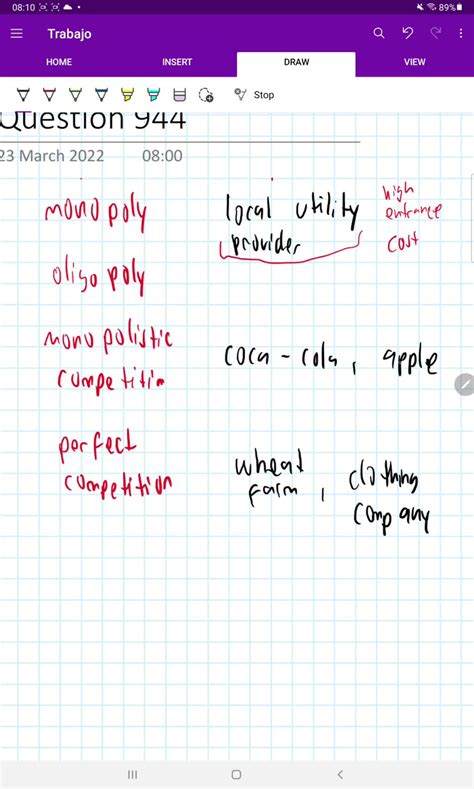 08:10 89%
Trabajo
HOME INSERT DRAW VIEW
Stop
Question 944
23 March 2022 08:00
monopoly local utility provider high entrance cost
oligopoly
monopolistic competition coca-cola, apple
perfect competition wheat farm, clothing company